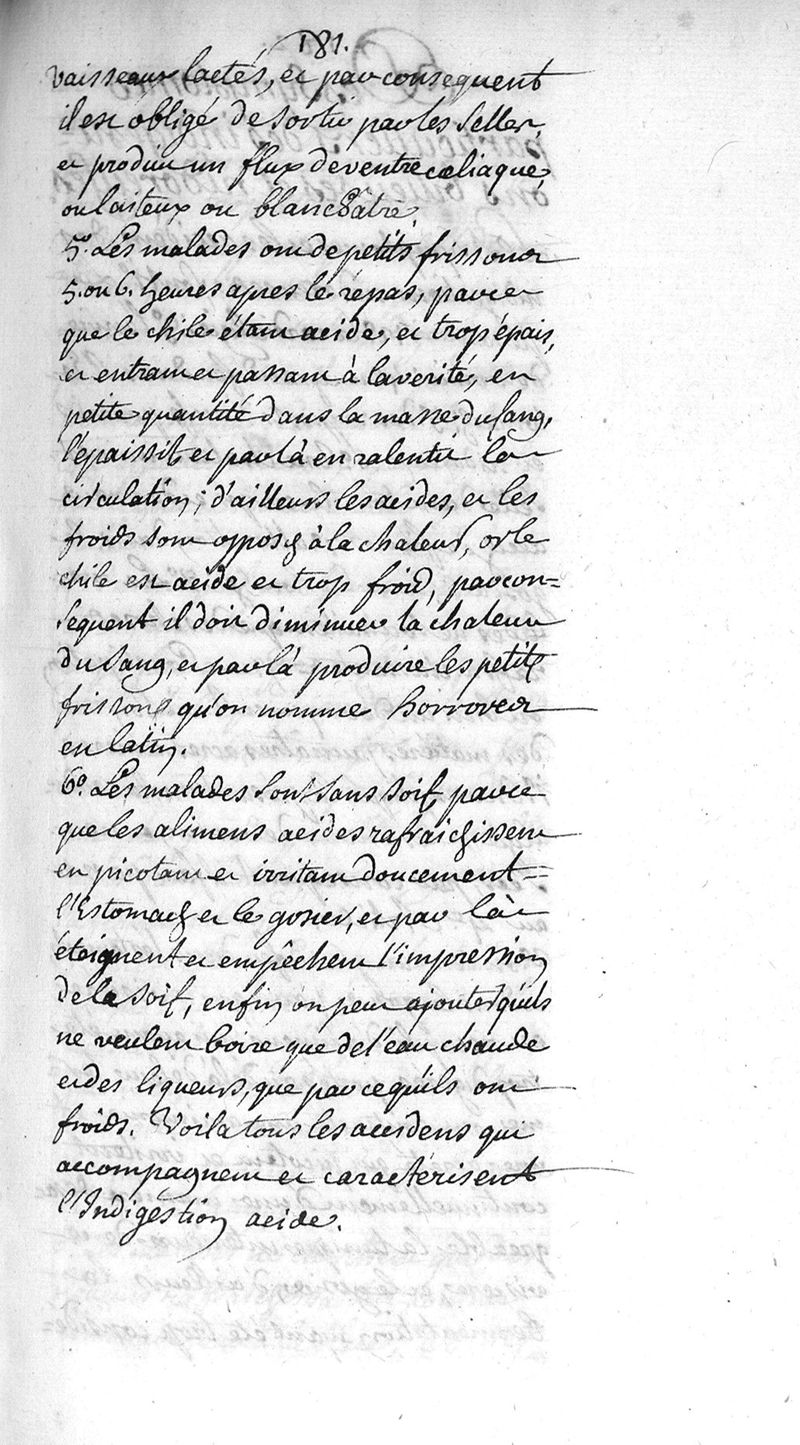 181.
vaisseaux lactés, et par consequent
il est obligé de sortir par les selles,
et produit un flux de ventre cœliaque,
ou laiteux ou blanchâtre.
5.° Les malades ont de petits frissons
5. ou 6. heures apres le répas, parce
que le chile étant acide, et trop épais,
et entrant et passant à la verité, en
petite quantité dans la masse du sang,
l'épaissit et par là en ralentit la
circulation; d'ailleurs les acides, et les
froids sont opposés à la chaleur, or le
chile est acide et trop froid, par con=
sequent il doit diminuer la chaleur
du sang, et par là produire les petits
frissons qu'on nomme horrores
en latin.
6.° Les malades sont sans soif, parce
que les alimens acides rafraichissent
en picotant et irritant doucement=
l'Estomach et le gosier, et par là
éteignent et empêchent l'impression
de la soif, enfin on peut ajouter qu'ils
ne veulent boire que de l'eau chaude
et des liqueurs, que parce qu'ils ont
froids. Voila tous les accidens qui
accompagnent et caractérisent
l'Indigestion acide.